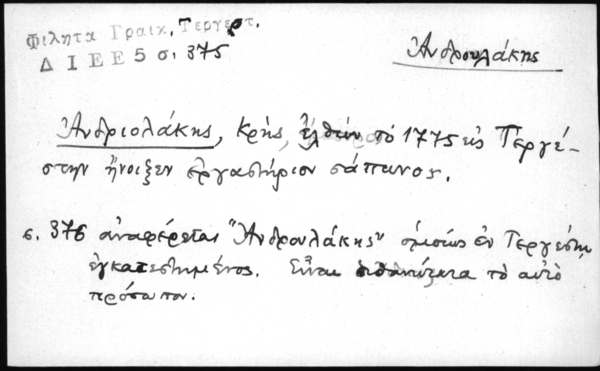 Φιλητα Γραικ. Τεργεστ.
Δ Ι Ε Ε 5 σ. 375
Ἀνδρουλάκης
Ἀνδριολάκης, Κρής, ἐλθών τὸ 1775 εἰς Τεργέ-
στην ἤνοιξεν ἐργαστήριον σάπωνος.
σ. 376 ἀναφέρεται "Ἀνδρουλάκης" ὁμοίως ἐν Τεργέστῃ
ἐγκατεστημένος. Εἶναι τὸ αὐτὸ
πρόσωπον.